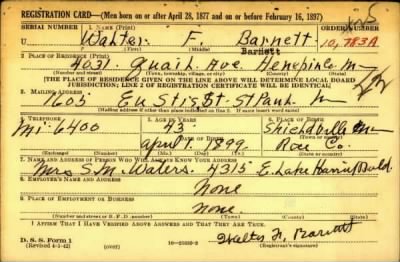 REGISTRATION CARD—(Men born on or after April 28, 1877 and on or before February 16, 1897)
SERIAL NUMBER
1. NAME (Print)
ORDER NUMBER
U
Walter F. Barnett
10,783A
(First) (Middle) (Last)
Barnett
2. PLACE OF RESIDENCE (Print)
4031 Quail Ave Henepin Co M
(Number and street) (Town, township, village, or city) (County) (State)
[THE PLACE OF RESIDENCE GIVEN ON THE LINE ABOVE WILL DETERMINE LOCAL BOARD
JURISDICTION; LINE 2 OF REGISTRATION CERTIFICATE WILL BE IDENTICAL]
3. MAILING ADDRESS
1605 St Paul
[Mailing address if other than place indicated on line 2. If same insert word same]
4. TELEPHONE
5. AGE IN YEARS
6. PLACE OF BIRTH
Mi 6400
43
DATE OF BIRTH
(Town or county)
April 1 1899
Rice Co.
(Exchange) (Number)
(Mo.) (Day) (Yr.)
(State or country)
7. NAME AND ADDRESS OF PERSON WHO WILL ALWAYS KNOW YOUR ADDRESS
Mrs S. M. Waters 4315 E. Lake Harriet Buld
8. EMPLOYER'S NAME AND ADDRESS
None
9. PLACE OF EMPLOYMENT OR BUSINESS
None.
(Number and street or R. F. D. number) (Town) (County) (State)
I AFFIRM THAT I HAVE VERIFIED ABOVE ANSWERS AND THAT THEY ARE TRUE.
D. S. S. Form 1
(Revised 4-1-42) (over)
Barnett